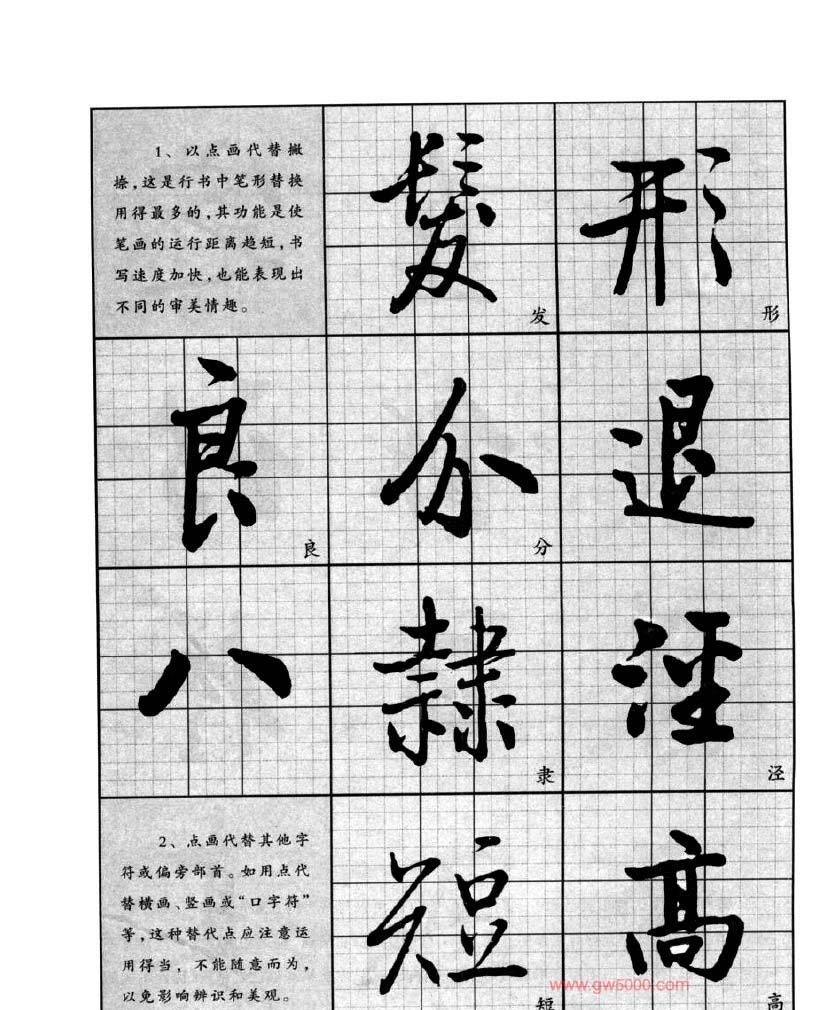 1、以点画代替撇
捺,这是行书中笔形替换
用得最多的,其功能是使
笔画的运行距离趋短,书
写速度加快,也能表现出
不同的审美情趣。
髮 形
发 形
良 分 退
良 分
八 隷 涇
隶 泾
2、点画代替其他字
符或偏旁部首。如用点代
替横画、竖画或“口字符”
等,这种替代点应注意运
用得当,不能随意而为,
以免影响辨识和美观。
短 高
短 高
www.gw5000.com